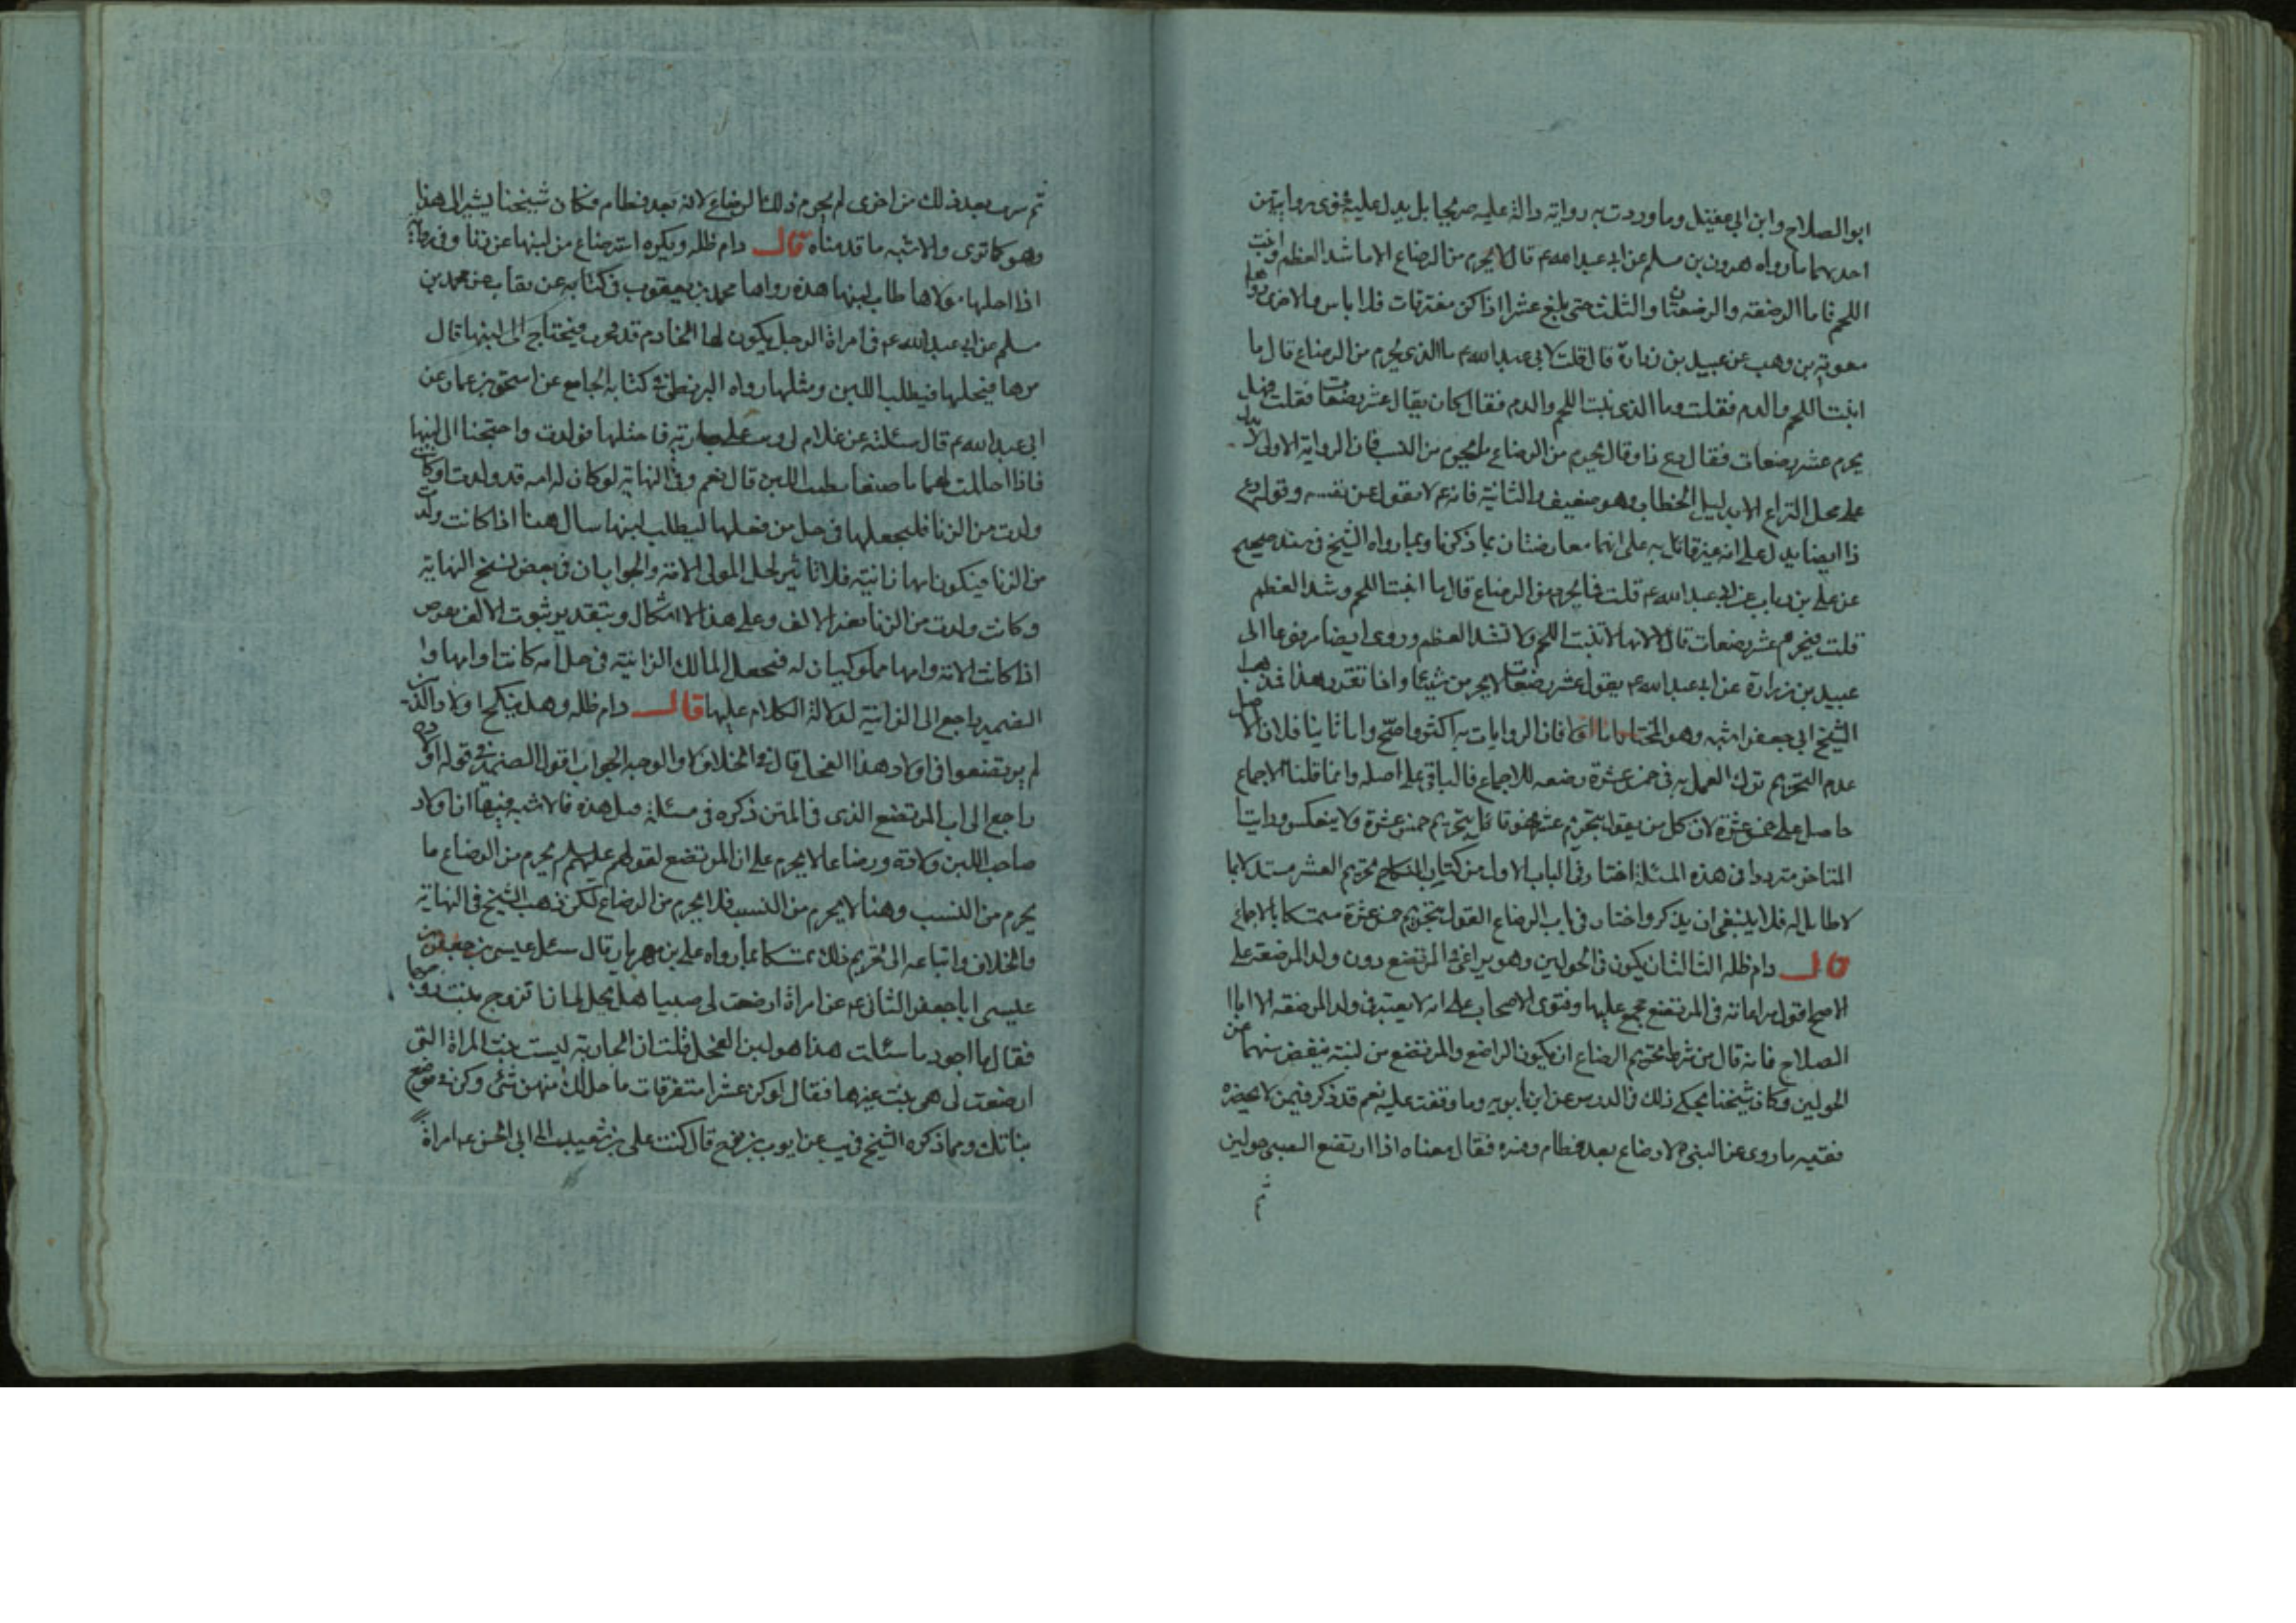 ابو الصلاح وابن ابي عقيل وما وردت به رواية دالة عليه صريحا بل يدل عليه فحوى روايتين
احديهما ما رواه هرون بن مسلم عن ابي عبد الله ع قال لا يحرم من الرضاع الا ما شد العظم وانبت
اللحم فاما الرضعة والرضعتان والثلث حتى بلغ عشرا اذا كن متفرقات فلا باس والاخرى رواها
معوية بن وهب عن عبيد بن زرارة قال قلت لابي عبد الله ع ما الذي يحرم من الرضاع قال ما
انبت اللحم والدم فقلت وما الذي ينبت اللحم والدم فقال كان يقال عشر رضعات فقلت فهل
يحرم عشر رضعات فقال دع ذا وقال يحرم من الرضاع ما يحرم من النسب فان الرواية الاولى لا يدل
على محل النزاع الا بدليل الخطاب وهو ضعيف والثانية فانه ع لا يقول عن نفسه وقوله دع
ذا ايضا يدل على انه غير قائل به على انهما معارضتان بما ذكرنا وبما رواه الشيخ في سند صحيح
عن علي بن رياب عن ابي عبد الله ع قلت فما يحرم من الرضاع قال ما انبت اللحم وشد العظم
قلت فيحرم عشر رضعات قال لا لانها لا تنبت اللحم ولا تشد العظم وروى ايضا مرفوعا الى
عبيد بن زرارة عن ابي عبد الله ع يقول عشر رضعات لا يحرمن شيئا واذا تقرر هذا فمذهب
الشيخ ابي جعفر اشبه وهو المختار اما اولا فان الروايات به اكثر واصح واما ثانيا فلان الاصل
عدم التحريم ترك العمل به في خمس عشرة رضعه للاجماع فالباقي على اصله وانما قلنا الاجماع
حاصل على خمس عشرة لان كل من يقول بتحريم عشر فهو قائل بتحريم خمس عشرة ولا ينعكس ورايت
المتاخر مترددا في هذه المسئلة اختار في الباب الاول من كتاب النكاح تحريم العشر مستدلا بما
لا طايل له فلا ينبغي ان يذكر واختار في باب الرضاع القول بتحريم خمس عشرة متمسكا بالاجماع
قال دام ظله الثالث ان يكون في الحولين وهو يراعى في المرتضع دون ولد المرضعة على
الاصح اقول مراعاته في المرتضع مجمع عليها وفتوى الاصحاب على انه لا يعتبر في ولد المرضعه الا ابا
الصلاح فانه قال من شرط تحريم الرضاع ان يكون الراضع والمرتضع من لبنه ينقص سنهما عن
الحولين وكان شيخنا يحكي ذلك في الدرس عن ابن بابويه وما وقفت عليه نعم قد ذكر فيمن لا يحضره
فقيه ما روى عن النبي ص لا رضاع بعد فطام وفسره فقال معناه اذا ارتضع الصبي حولين
ثم
ثم شرب بعد ذلك من اخرى لم يحرم ذلك الرضاع لانه بعد فطام وكان شيخنا يشير الى هذا
وهو كما ترى والاشبه ما قدمناه قال دام ظله ويكره استرضاع من لبنها عن زنا وفي رواية
اذا احلها مولاها طاب لبنها هذه رواها محمد بن يعقوب في كتابه عن محمد بن
مسلم عن ابي عبد الله ع في امراة الرجل يكون لها الخادم قد فجرت فيحتاج الى لبنها قال
مرها فيحلها فيطلب اللبن ومثلها رواه البزنطي في كتابه الجامع عن اسحق بن عمار عن
ابي عبد الله ع قال سئلته عن غلام لي وثب على جارية فاحبلها فولدت واحتجنا الى لبنها
فاذا احللت لهما ما صنعا يطيب اللبن قال نعم وفي النهاية لو كان له امه قد ولدت وكانت
ولدت من الزنا فليجعلها في حل من فعلها ليطلب لبنها سال هنا اذا كانت ولدت
من الزنا فيكون امها زانية فلا تاثير لحل المولى الامة والجواب ان في بعض نسخ النهاية
وكانت ولدت من الزنا بغير الالف وعلى هذا لا اشكال وبتقدير ثبوت الالف
اذا كانت الامة وامها مملوكتان له فيجعل المالك الزانية في حل امه كانت او امها
الضمير راجع الى الزانية لدلالة الكلام عليها قال دام ظله وهل ينكح اولاده الذين
لم يرتضعوا في اولاد هذا الفحل قال في الخلاف لا والوجه الجواز اقول الضمير في قوله اولاده
راجع الى اب المرتضع الذي في المتن ذكره في مسئلة قبل هذه فالاشبه فيها ان اولاد
صاحب اللبن ولادة ورضاعا لا يحرم على اب المرتضع لقولهم عليهم السلم يحرم من الرضاع ما
يحرم من النسب وهنا لا يحرم من النسب فلا يحرم من الرضاع لكن ذهب الشيخ في النهاية
والخلاف واتباعه الى تحريم ذلك تمسكا بما رواه علي بن مهزيار قال سئل عيسى بن جعفر بن
عيسى ابا جعفر الثاني ع عن امراة ارضعت لي صبيا هل يحل لي ان اتزوج بنت زوجها
فقال ما اجود ما سئلت هذا هو لبن الفحل قلت ان الجارية ليست بنت المراة التي
ارضعت لي هي بنت غيرها فقال لو كن عشرا متفرقات ما حل لك منهن شئ وكن في موضع
بناتك وبما ذكره الشيخ في يب عن ايوب بن نوح قال كتب علي بن شعيب الى ابي الحسن ع امراة